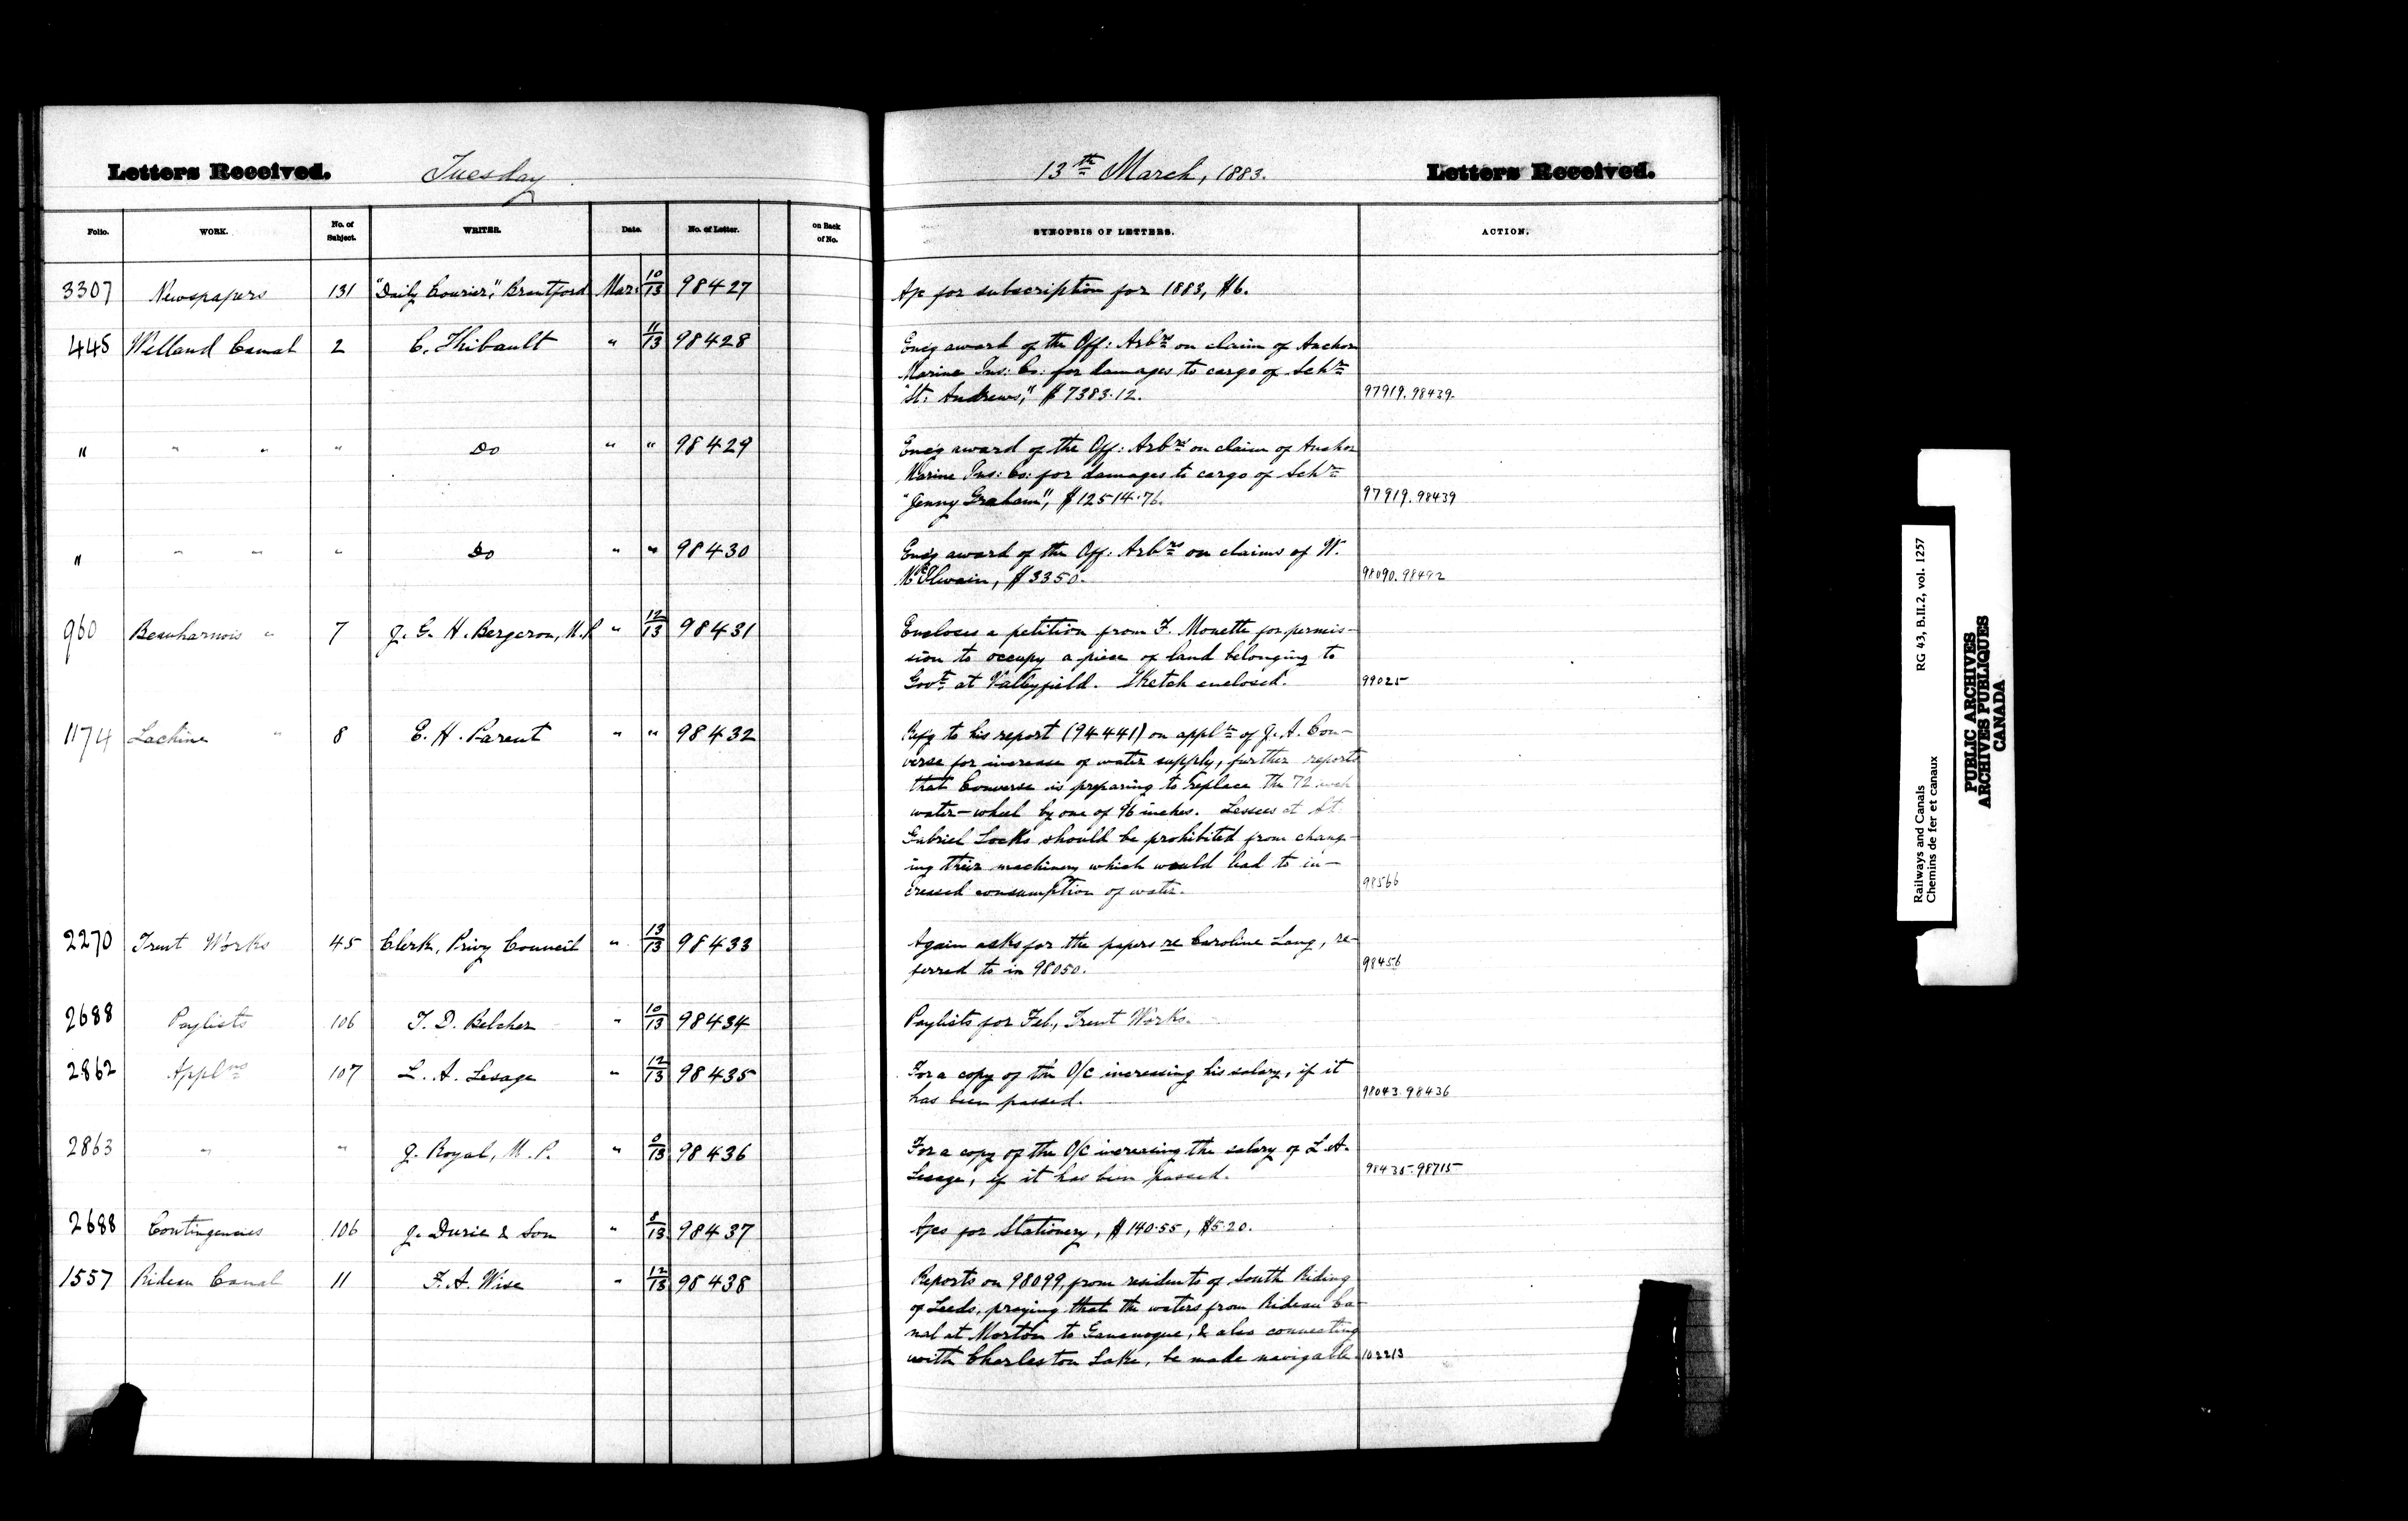 Letters Received. Tuesday 13th March, 1883. Letters Received.
Folio. WORK. No. of Subject. WRITER. Date. No. of Letter. on Back of No. SYNOPSIS OF LETTERS. ACTION.
3307 Newspapers 131 "Daily Courier," Brantford Mar. 10/13 98427 A/c for subscription for 1883, $6.
445 Welland Canal 2 C. Thibault " 11/13 98428 Encg award of the Off: Arbrs on claim of Anchor
Marine Ins: Co: for damages to cargo of Schr
"St. Andrews," $7383.12. 97919. 98439.
" " " " Do " " 98429 Encg award of the Off: Arbrs on claim of Anchor
Marine Ins: Co: for damages to cargo of Schr
"Jenny Graham", $12514.76. 97919. 98439
" " " " Do " " 98430 Encg award of the Off: Arbrs on claims of W.
McIlwain, $3350. 98090. 98492
960 Beauharnois " 7 J. G. H. Bergeron, M.P. " 12/13 98431 Encloses a petition from F. Monette for permis-
sion to occupy a piece of land belonging to
Govt. at Valleyfield. Sketch enclosed. 99025
1174 Lachine " 8 E. H. Parent " " 98432 Refg to his report (94441) on appln of J. A. Con-
verse for increase of water supply, further reports
that Converse is preparing to replace the 72 inch
water-wheel by one of 96 inches. Lessees at St.
Gabriel Locks should be prohibited from chang-
ing their machinery which would lead to in-
creased consumption of water. 98566
2270 Trent Works 45 Clerk, Privy Council " 13/13 98433 Again asks for the papers re Caroline Lang, re-
ferred to in 98050. 98456
2688 Paylists 106 T. D. Belcher " 10/13 98434 Paylists for Feb., Trent Works.
2862 Applns 107 L. A. Lesage " 12/13 98435 For a copy of the O/C increasing his salary, if it
has been passed. 98043. 98436
2863 " " J. Royal, M.P. " 9/13 98436 For a copy of the O/C increasing the salary of L. A.
Lesage, if it has been passed. 98435. 98715
2688 Contingencies 106 J. Durie & Son " 8/13 98437 A/cs for Stationery, $140.55, $5.20.
1557 Rideau Canal 11 F. A. Wise " 12/13 98438 Reports on 98099, from residents of South Riding
of Leeds, praying that the waters from Rideau Ca-
nal at Morton to Gananoque, & also connecting
with Charleston Lake, be made navigable. 102213
Railways and Canals RG 43, B.II.2, vol. 1257
Chemins de fer et canaux
PUBLIC ARCHIVES
ARCHIVES PUBLIQUES
CANADA